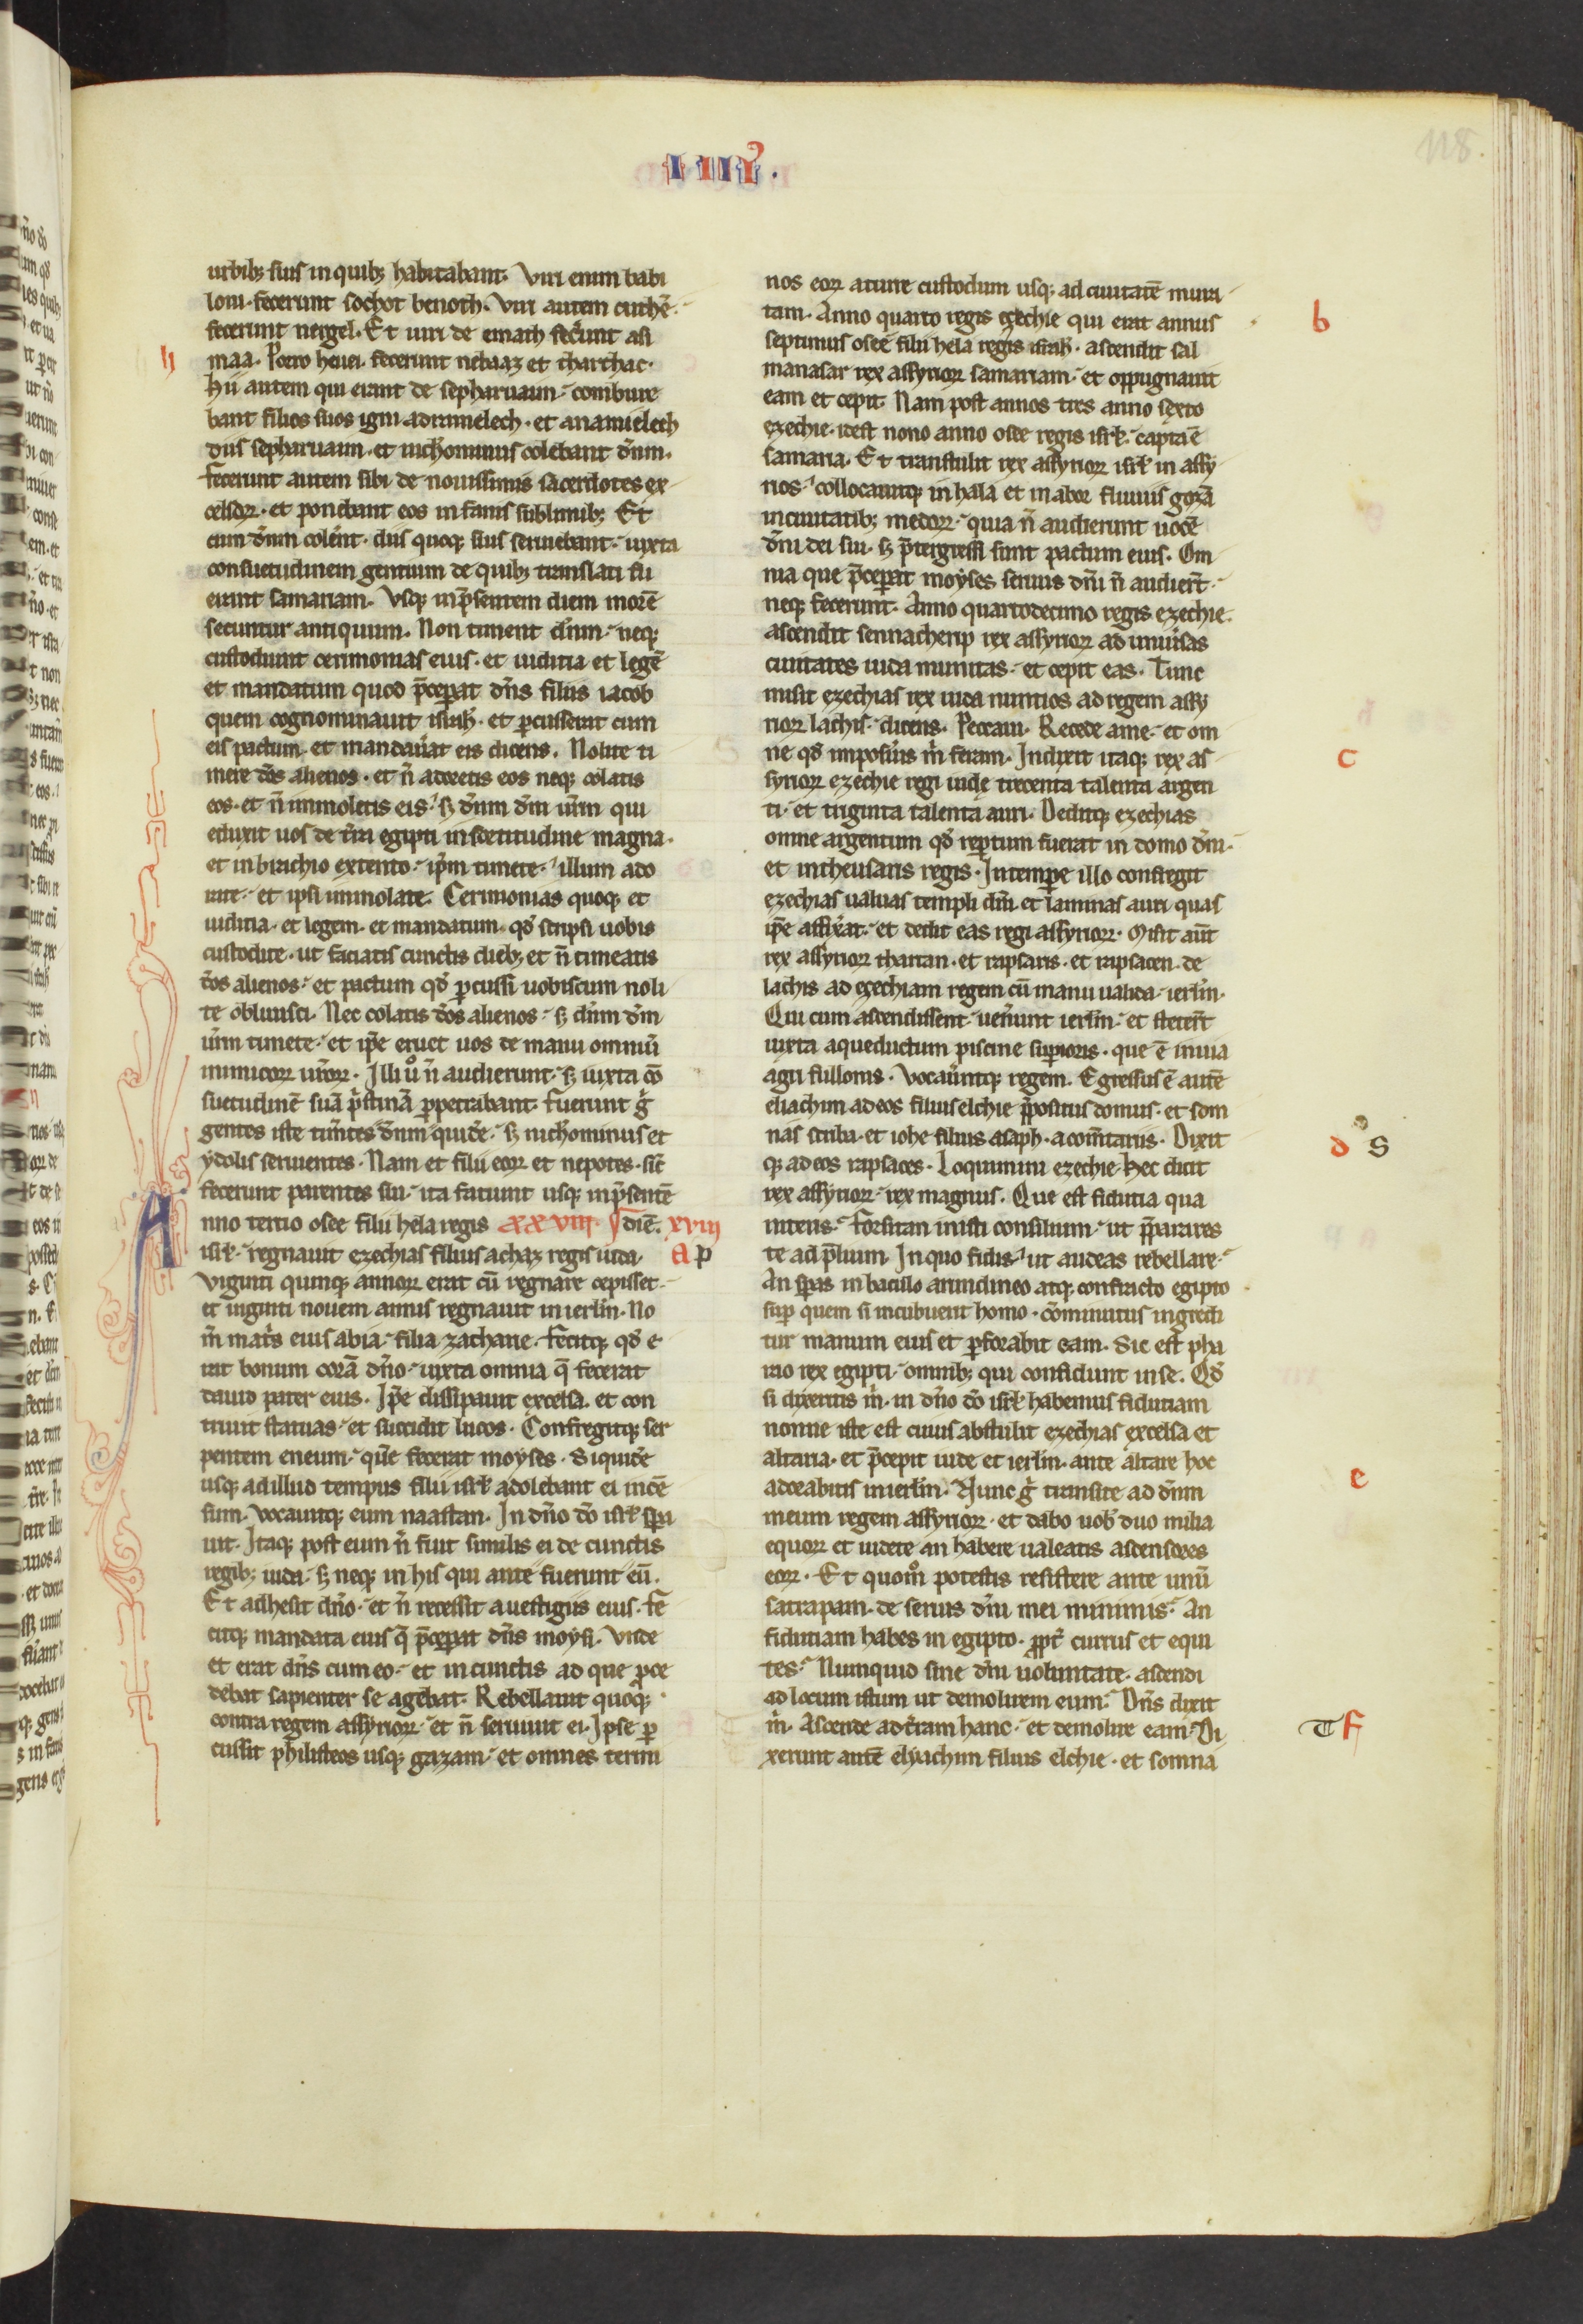 IIII
118.
urbib; suis in quib; habitabant. Viri enim babi
loni. fecerunt sochot benoth. Viri autem cuthe᷑.
fecerunt nergel. Et uiri de emath fec̄unt asi
maa. Porro heuei. fecerunt nebaaz et tharthac.
h
hii autem qui erant de sepharuaim. combure
bant filios suos igni. adramelech. et anamelech
diis sepharuaim. et nichominus colebant dn̄m.
fecerunt autem sibi de nouissimis sacerdotes ex
celsoꝝ. et ponebant eos in fanis sublimib; Et
cum dn̄m colēnt. diis quoq; suis seruiebant. iuxta
consuetudinem gentium de quib; translati fu
erant samariam. Vsq; in p̄sentem diem morē
secuntur antiquum. Non timent dn̄m. neq;
custodiunt cerimonias eius. et iudicia et legē
et mandatum quod p̄ceperat dn̄s filiis iacob
quem cognominauit isrl̄. et ꝑcusserat cum
eis pactum. et mandau̓at eis dicens. Nolite ti
mere dōs alienos. et n̄ adoretis eos neq; colatis
eos. et n̄ immoletis eis. sꝫ dn̄m dm̄ ur̄m qui
eduxit uos de tr̄a egipti in fortitudine magna.
et in brachio extento. ip̄m timete. illum ado
rate. et ipsi immolate. Cerimonias quoq; et
iudicia. et legem. et mandatum. qd̄ scripsi uobis
custodite. ut faciatis cunctis dieb; et n̄ timeatis
dōs alienos. et pactum qd̄ ꝑcussi uobiscum noli
te obliuisci. Nec colatis dōs alienos. sꝫ dn̄m dm̄
ur̄m timete. et ip̄e eruet uos de manu omniū
inimicoꝝ ur̄oꝝ. Illi uͦ n̄ audierunt. sꝫ iuxta cō
suetudinē suā p̓stinā ꝑpetrabant. fuerunt g̓
gentes iste tim̄tes dn̄m quidē. sꝫ nichominus et
ydolis seruientes. Nam et filii eoꝝ et nepotes. sic̄
fecerunt parentes sui. ita faciunt usq; in p̄sentē
Anno tertio osee filii hela regis XXVIII. diē. xviii
isrl̄. regnauit ezechias filius achaz regis iuda.
A p
Viginti quinq; annoꝝ erat cū regnare cepisset.
et uiginti nouem annis regnauit in ierlm̄. No
m̄ mat̓s eius abia. filia zacharie. fecitq; qd̄ e
rat bonum corā dn̄o. iuxta omnia q̄ fecerat
dauid pater eius. Ip̄e dissipauit excelsa. et con
triuit statuas. et succidit lucos. Confregitq; ser
pentem eneum. quē fecerat moyses. Siquidē
usq; ad illud tempus filii isrl̄ adolebant ei incē
sum. Vocauitq; eum naastan. In dn̄o dō isrl̄ spa
uit. Itaq; post eum n̄ fuit similis ei de cunctis
regib; iuda. sꝫ neq; in his qui ante fuerunt eū.
Et adhesit dn̄o. et n̄ recessit a uestigiis eius. fe
citq; mandata eius q̄ p̄ceperat dn̄s moysi. Vnde
et erat dn̄s cum eo. et in cunctis ad que ꝓce
debat sapienter se agebat. Rebellauit quoq;
contra regem assyrioꝝ. et n̄ seruiuit ei. Ipse ꝑ
cussit philisteos usq; gazam. et omnes termi
nos eoꝝ a turre custodum usq; ad ciuitatē muni
tam. Anno quarto regis ezechie qui erat annus
b
septimus osee filii hela regis isrl̄. ascendit sal
manasar rex assyrioꝝ samariam. et oppugnauit
eam et cepit. Nam post annos tres anno sexto
ezechie. idest nono anno osee regis isrl̄. capta ē
samaria. Et transtulit rex assyrioꝝ isrl̄ in assy
rios. collocauitq; in hala et in abor fluuiis gozā
in ciuitatib; medoꝝ. quia n̄ audierunt uocē
dn̄i dei sui. sꝫ p̄tergressi sunt pactum eius. Om
nia que p̄ceperat moyses seruus dn̄i n̄ audier̄t.
neq; fecerunt. Anno quartodecimo regis ezechie.
ascendit sennacherip rex assyrioꝝ ad uniu̓sas
ciuitates iuda munitas. et cepit eas. Tunc
misit ezechias rex iuda nuntios ad regem assy
rioꝝ lachis. dicens. Peccaui. Recede a me. et om
ne qd̄ imposu̓is m̓ feram. Indixit itaq; rex as
c
syrioꝝ ezechie regi iude trecenta talenta argen
ti. et triginta talenta auri. Deditq; ezechias
omne argentum qd̄ reptum fuerat in domo dn̄i.
et in thesauris regis. In tempore illo confregit
ezechias ualuas templi dn̄i. et laminas auri quas
ip̄e affix̓at. et dedit eas regi assyrioꝝ. Misit aūt
rex assyrioꝝ thartan. et rapsaris. et rapsacen. de
lachis ad ezechiam regem cū manu ualida. ierlm̄.
Qui cum ascendissent. uen̓unt ierlm̄. et steter̄t
iuxta aqueductum piscine supioris. que ē in uia
agri fullonis. Vocau̓ntq; regem. Egressus ē autē
eliachim ad eos filius elchie p̄positus domus. et som
nas scriba. et iohe filius asaph. a com̄tariis. Dixit
d S
q; ad eos rapsaces. Loquimini ezechie. hec dicit
rex assyrioꝝ. rex magnus. Que est fiducia qua
niteris. Forsitan inisti consilium. ut p̄parares
te ad p̄lium. In quo fidis. ut audeas rebellare.
An speras in baculo arundineo atq; confracto egipto
sup quem si incubuerit homo. cōminutus ingredi
tur manum eius et ꝑforabit eam. Sic est pha
rao rex egipti. omnib; qui confidunt in se. Qd̄
si dixeritis m̓. in dn̄o dō isrl̄ habemus fiduciam
nonne iste est cuius abstulit ezechias excelsa et
altaria. et p̄cepit iude et ierlm̄. ante altare hoc
e
adorabitis in ierlm̄. Nunc g̓ transite ad dn̄m
meum regem assyrioꝝ. et dabo uob̓ duo milia
equoꝝ et uidete an habere ualeatis ascensores
eoꝝ. Et quom̊ potestis resistere ante unū
satrapam. de seruis dn̄i mei minimis. An
fiduciam habes in egipto. ꝓpt̓ currus et equi
tes. Numquid sine dn̄i uoluntate. ascendi
ad locum istum ut demolirem eum. Dn̄s dixit
m̓. Ascende ad tr̄am hanc. et demolire eam. Di
T F
xerunt autē elyachim filius elchie. et somna